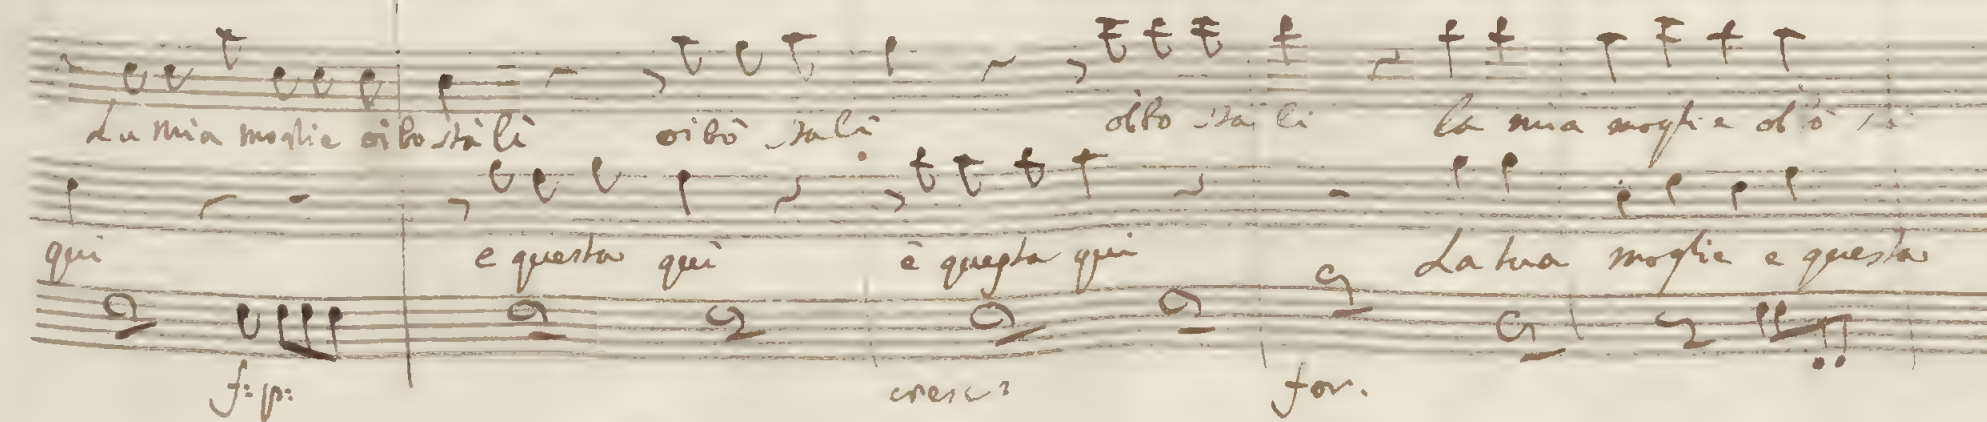 La mia moglie oibo stà lì oibò stà lì oibò stà li la mia moglie
qui e questa quì è questa qui La tua moglie e questa
f: p: cresc: for.